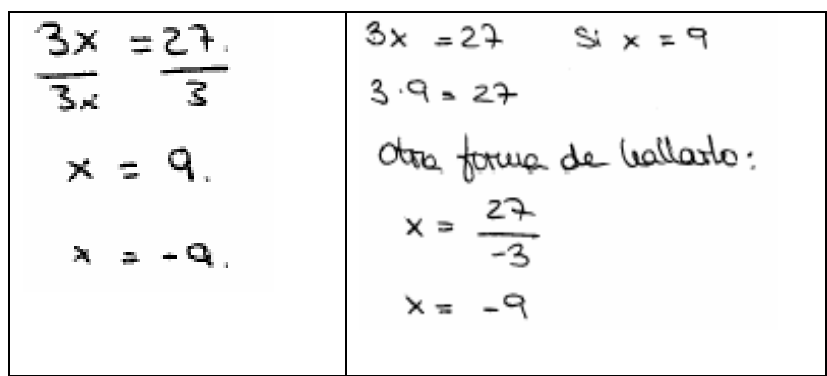 3x = 27.
3x 3
x = 9.
x = -9.
3x = 27 Si x = 9
3 · 9 = 27
Otra forma de hallarlo:
x = 27/-3
x = -9